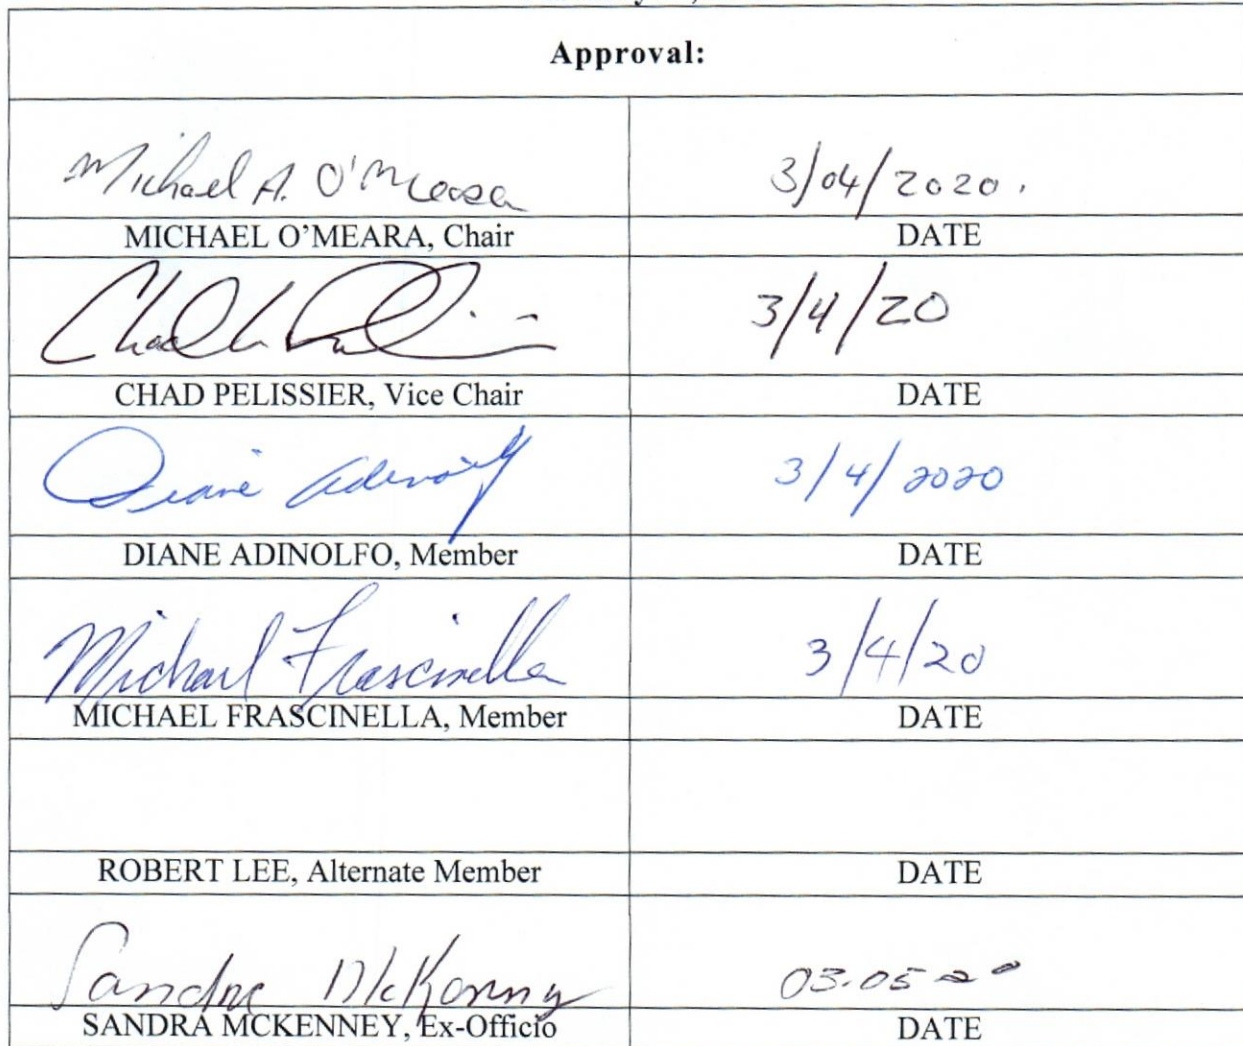 Approval:
Michael A. O'Meara
3/04/2020.
MICHAEL O'MEARA, Chair
DATE
3/4/20
CHAD PELISSIER, Vice Chair
DATE
Diane Adinolf
3/4/2020
DIANE ADINOLFO, Member
DATE
Michael Frascinella
3/4/20
MICHAEL FRASCINELLA, Member
DATE
ROBERT LEE, Alternate Member
DATE
Sandra McKenny
03.05 20
SANDRA MCKENNEY, Ex-Officio
DATE